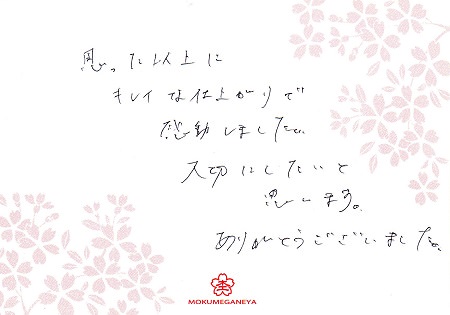 思った以上に
キレイな仕上がりで
感動しました。
大切にしたいと
思います。
ありがとうございました。
MOKUMEGANEYA